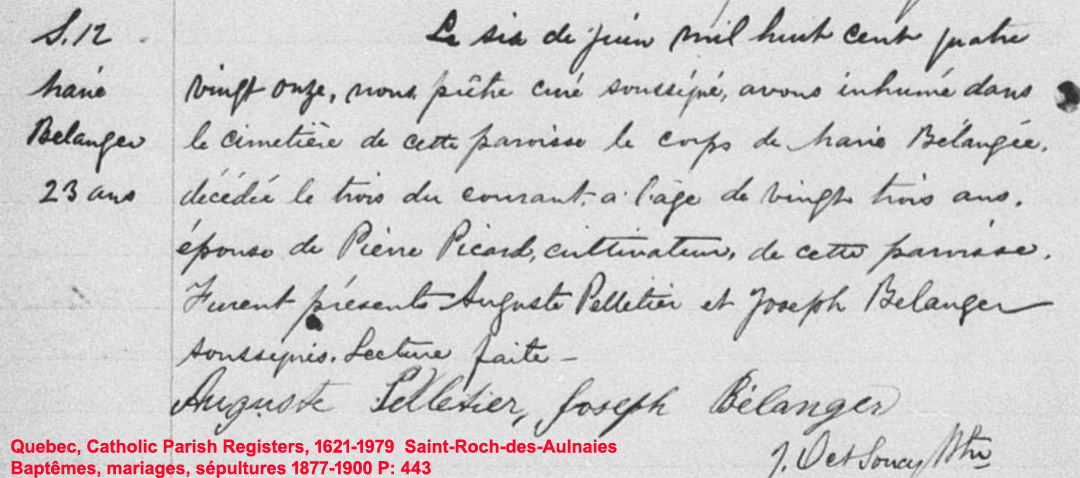 S. 12
Marie
Belanger
23 ans
Le six de juin mil huit cent quatre
vingt onze, nous, prêtre curé soussigné, avons inhumé dans
le cimetière de cette paroisse le corps de Marie Bélangée,
décédée le trois du courant, à l'âge de vingt trois ans,
épouse de Pierre Picard, cultivateur, de cette paroisse.
Furent présents Auguste Pelletier et Joseph Belanger
soussignés. Lecture faite –
Auguste Pelletier, Joseph Bélanger
J. Oct Soucy Ptre
Quebec, Catholic Parish Registers, 1621-1979 Saint-Roch-des-Aulnaies
Baptêmes, mariages, sépultures 1877-1900 P: 443